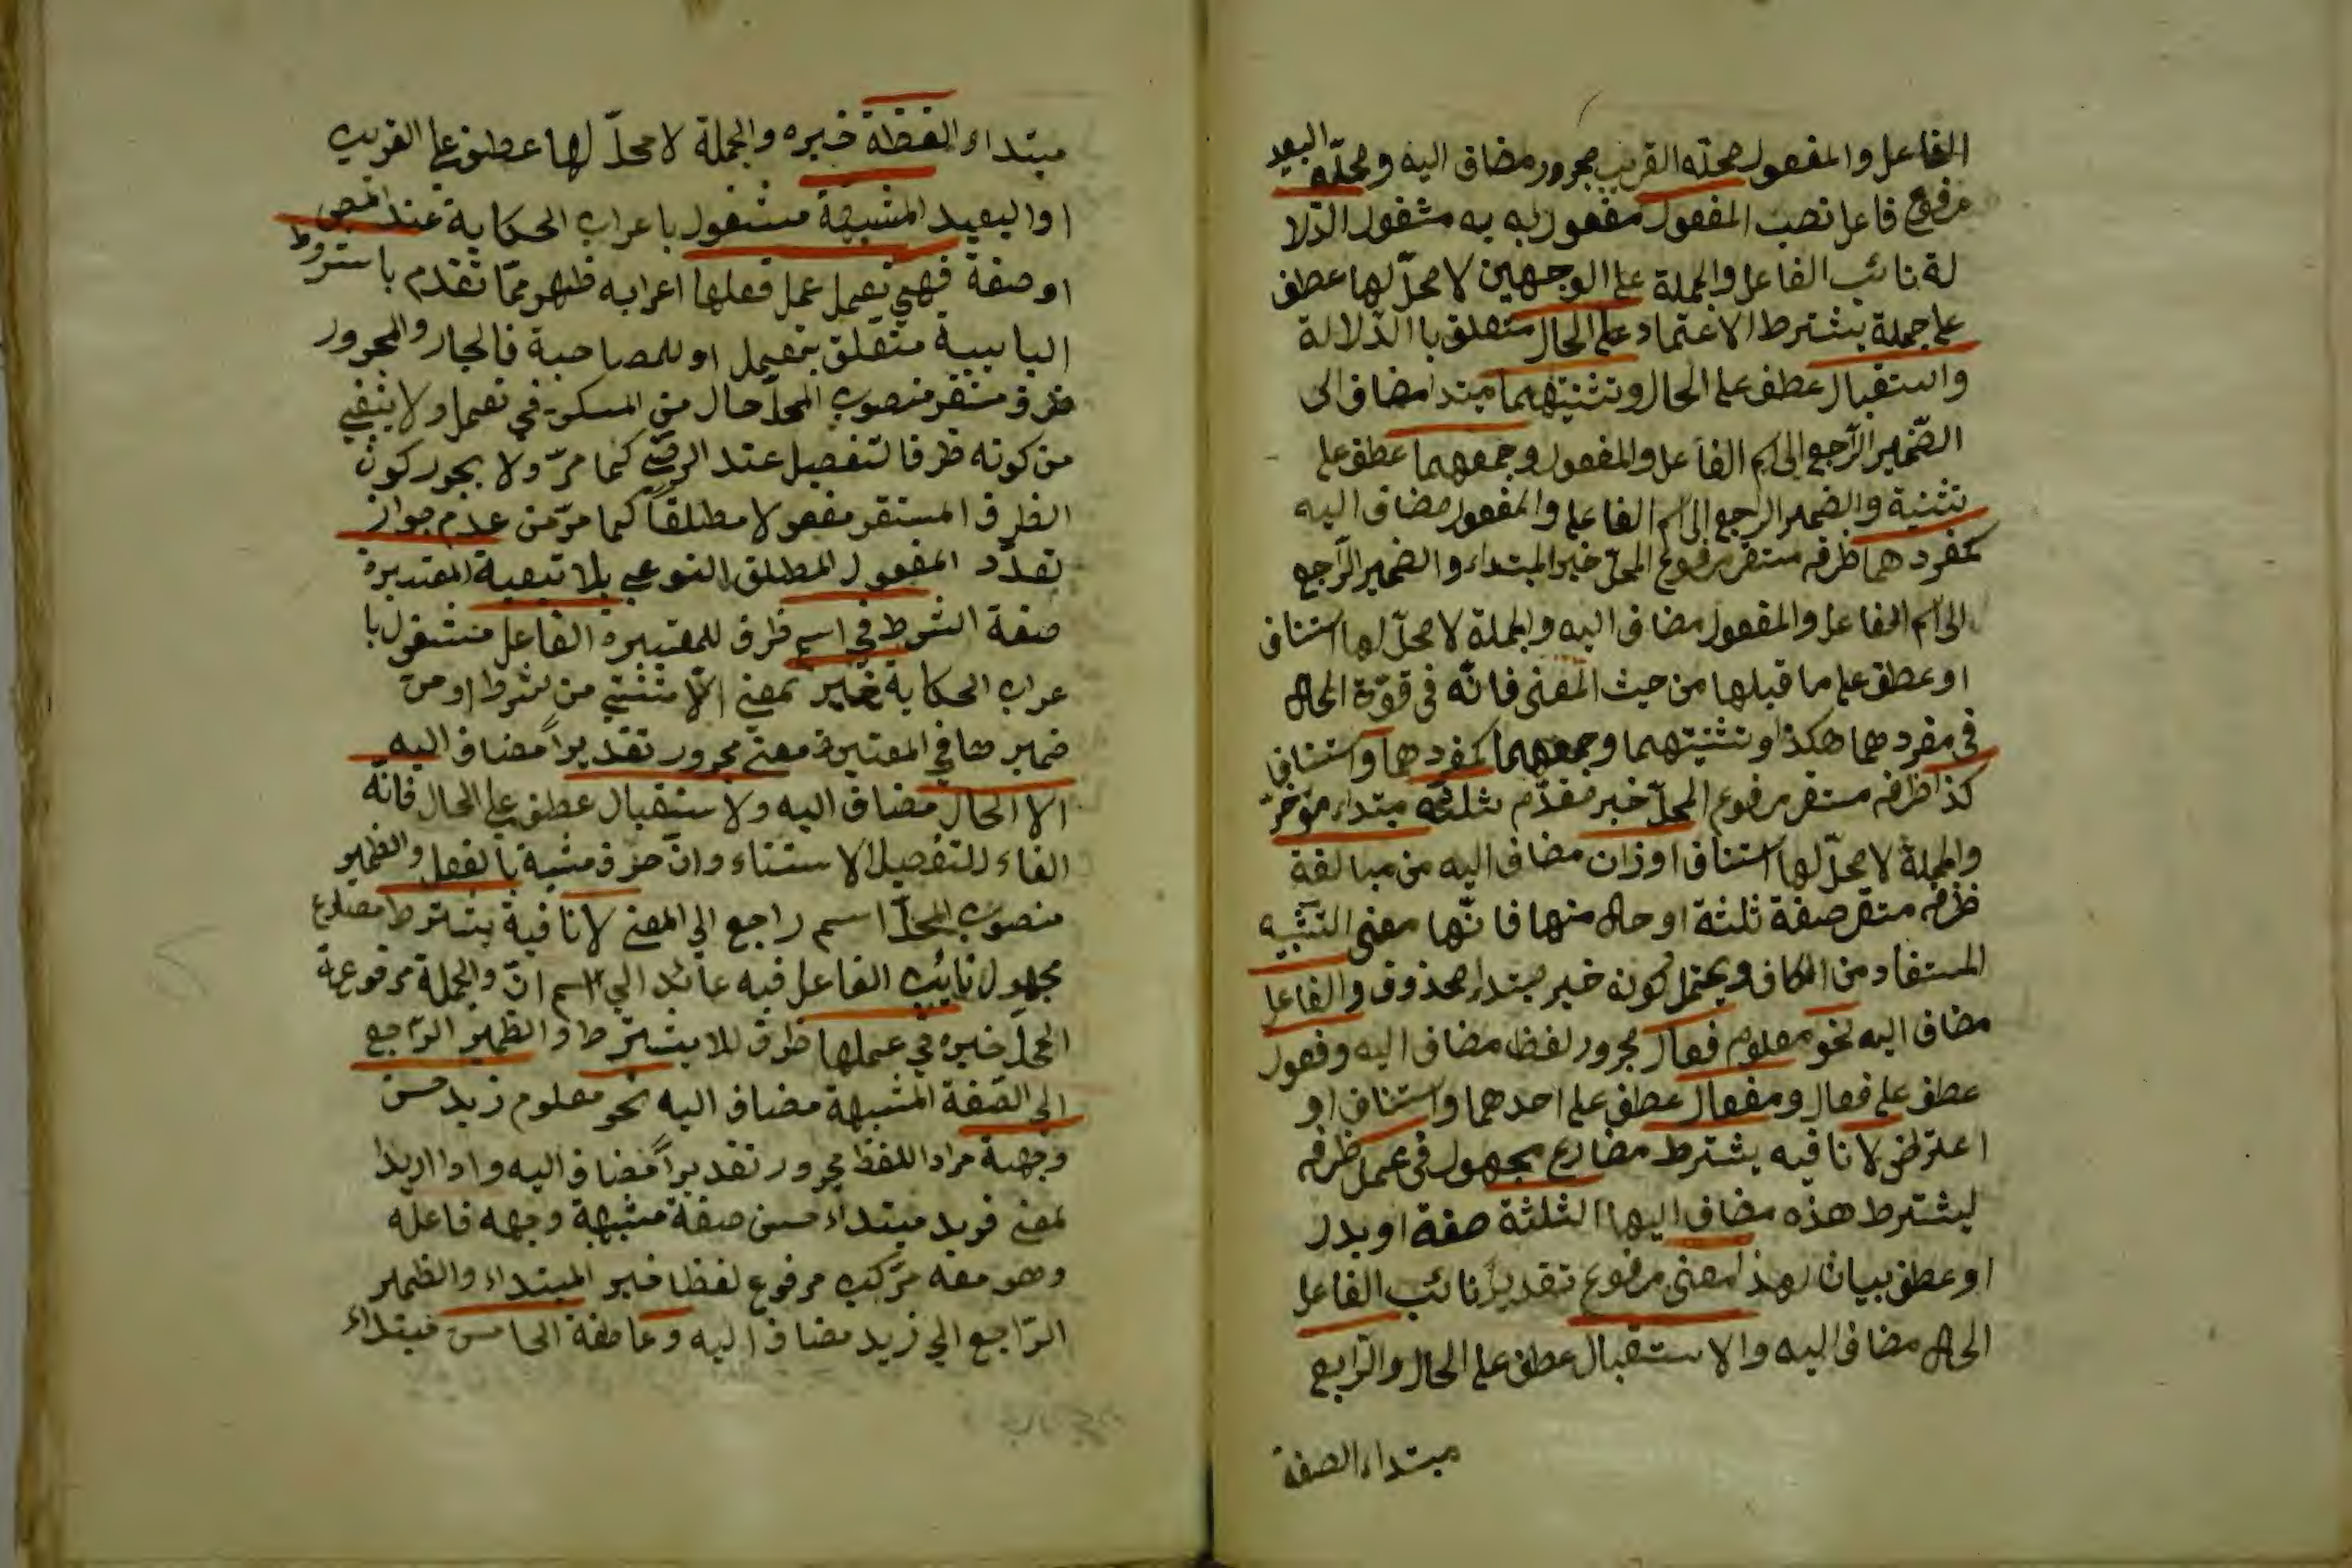 الفاعل والمفعول محلّه القريب مجرور مضاف اليه ومحلّه البعيد
مرفوع فاعل نصب المفعول مفعول به به مشغول الدّلا
لة نائب الفاعل والجملة على الوجهين لا محلّ لها عطف
على جملة يشترط الاعتماد على الحال متعلق باالدّلالة
واستقبال عطف على الحال وتثنيتهما مبتدا مضاف الى
الضّمير الرّاجع الى اسم الفاعل والمفعول وجمعهما عطف على
تثنية والضمير الراجع الى اسم الفاعل والمفعول مضاف اليه
كمفردهما ظرف مستقر مرفوع المحلّ خبر المبتداء والضمير الرّاجع
الى اسم الفاعل والمفعول مضاف اليه والجملة لا محلّ لها استناف
او عطف على ما قبلها من حيث المعنى فانّه فى قوّة الحال
فى مفردهما هكذا وتثنيتهما وجمعهما كمفردهما واستناف
كذا ظرف مستقر مرفوع المحلّ خبر مقدّم ثلثة مبتداء مؤخّر
والجملة لا محلّ لها استناف اوزان مضاف اليه من مبالغة
ظرف مستقر صفة ثلثة او حال منها فانّها معنى التّشبيه
المستفاد من الكاف ويحتمل كونه خبر مبتداء محذوف والفاعل
مضاف اليه نحو معلوم فعال مجرور لفظ مضاف اليه وفعول
عطف على فعال ومفعال عطف على احدهما واستناف او
اعتراض لا نافيه يشترط مضارع مجهول فى عمل ظرف
ليشترط هذه مضاف اليها الثلثة صفة او بدل
او عطف بيان لهذا معنى مرفوع تقديراً نائب الفاعل
الحال مضاف اليه والاستقبال عطف على الحال والرّابع
مبتداء الصفة
مبتداء الفظة خبره والجملة لا محلّ لها عطف على القريب
او البعيد المشبهة مشغول باعراب الحكاية عند
او صفة فهي تعمل عمل فعلها اعرابه ظهر ممّا تقدم باشروط
البا ببية متعلق بتعمل او للمصاحبة فالجار والمجرور
ظرف مستقر منصوب المحلّ حال من المسكن في تعمل ولا ينبغي
من كونه ظرفا لتفصيل عند الرضي كما مرّ ولا يجوز كون
الظرف المستقر مفعولا مطلقاً كما مرّ من عدم جواز
تعدّد المفعول المطلق النوعي بلا تبعية المعتبرة
صفة الشرط في اسم ظرف للمعتبرة الفاعل مشغول با
عراب الحكاية غير بمعنى الّا مثنتي من شرط او من
ضمير ها في المعتبرة معنى مجرور تقديراً مضاف اليه
الا الحال مضاف اليه ولا ستقبال عطف على الحال فانّه
الفاء للتفصيل الاستثناء وانّ حرف مشبة بالفعل والظمير
منصوب المحلّ اسم راجع الى المعنى لا نافية يشترط مضارع
مجهول نايب الفاعل فيه عائد الى اسم انّ والجملة مرفوعة
المحلّ خبره في عملها ظرف للا يشترط والظمير الرّاجع
الى الصّفة المشبهة مضاف اليه نحو معلوم زيد حسن
وجهه مراد اللفظ مجرور تقديراً مضاف اليه واذا اريد
لمعنى فريد مبتداء حسن صفة مشبهة وجهه فاعله
وهو معه مرّكب مرفوع لفظا خبر المبتداء والظمير
الرّاجع الى زيد مضاف اليه وعاطفة الخامس مبتداء